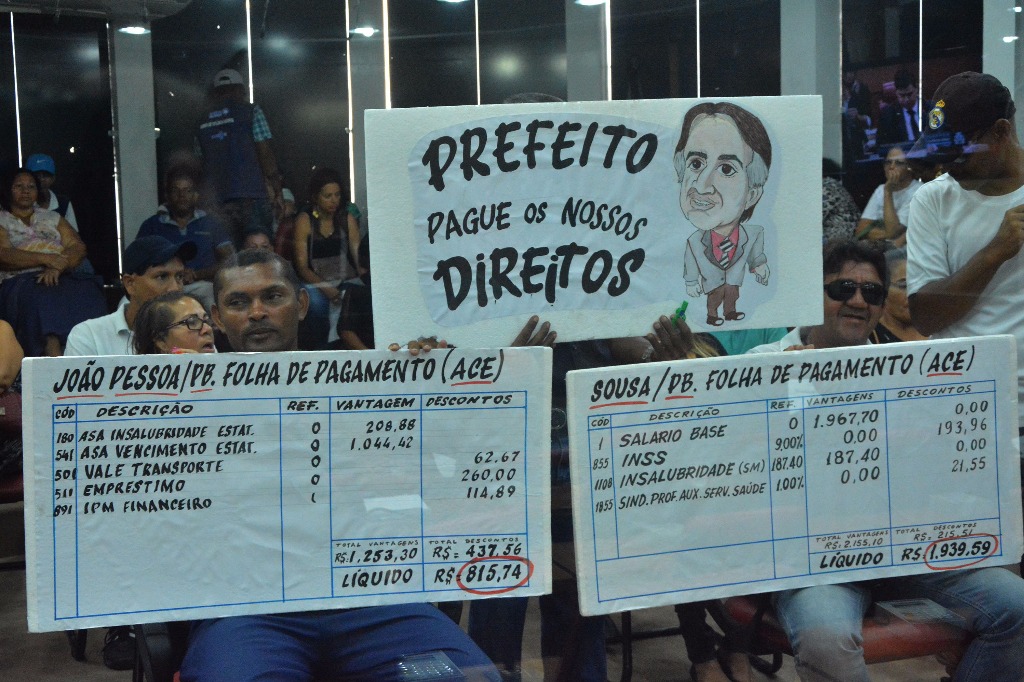 PREFEITO
PAGUE OS NOSSOS
DIREITOS
JOÃO PESSOA/PB. FOLHA DE PAGAMENTO (ACE)
CÓD DESCRIÇÃO REF. VANTAGEM DESCONTOS
180 ASA INSALUBRIDADE ESTAT. 0 208,88
541 ASA VENCIMENTO ESTAT. 0 1.044,42
501 VALE TRANSPORTE 0 62.67
511 EMPRESTIMO 0 260,00
891 IPM FINANCEIRO 1 114,89
TOTAL VANTAGENS TOTAL DESCONTOS
R$:1.253,30 R$= 437,56
LÍQUIDO R$= 815,74
SOUSA/PB. FOLHA DE PAGAMENTO (ACE)
CÓD. DESCRIÇÃO REF. VANTAGENS DESCONTOS
1 SALARIO BASE 0 1.967,70 0,00
855 INSS 9,00% 0,00 193,96
1108 INSALUBRIDADE (SM) 187.40 187,40 0,00
1855 SIND. PROF. AUX. SERV. SAÚDE 1.00% 0,00 21,55
TOTAL VANTAGENS TOTAL DESCONTOS
R$: 2.155,10 R$= 215,51
LÍQUIDO R$: 1.939,59